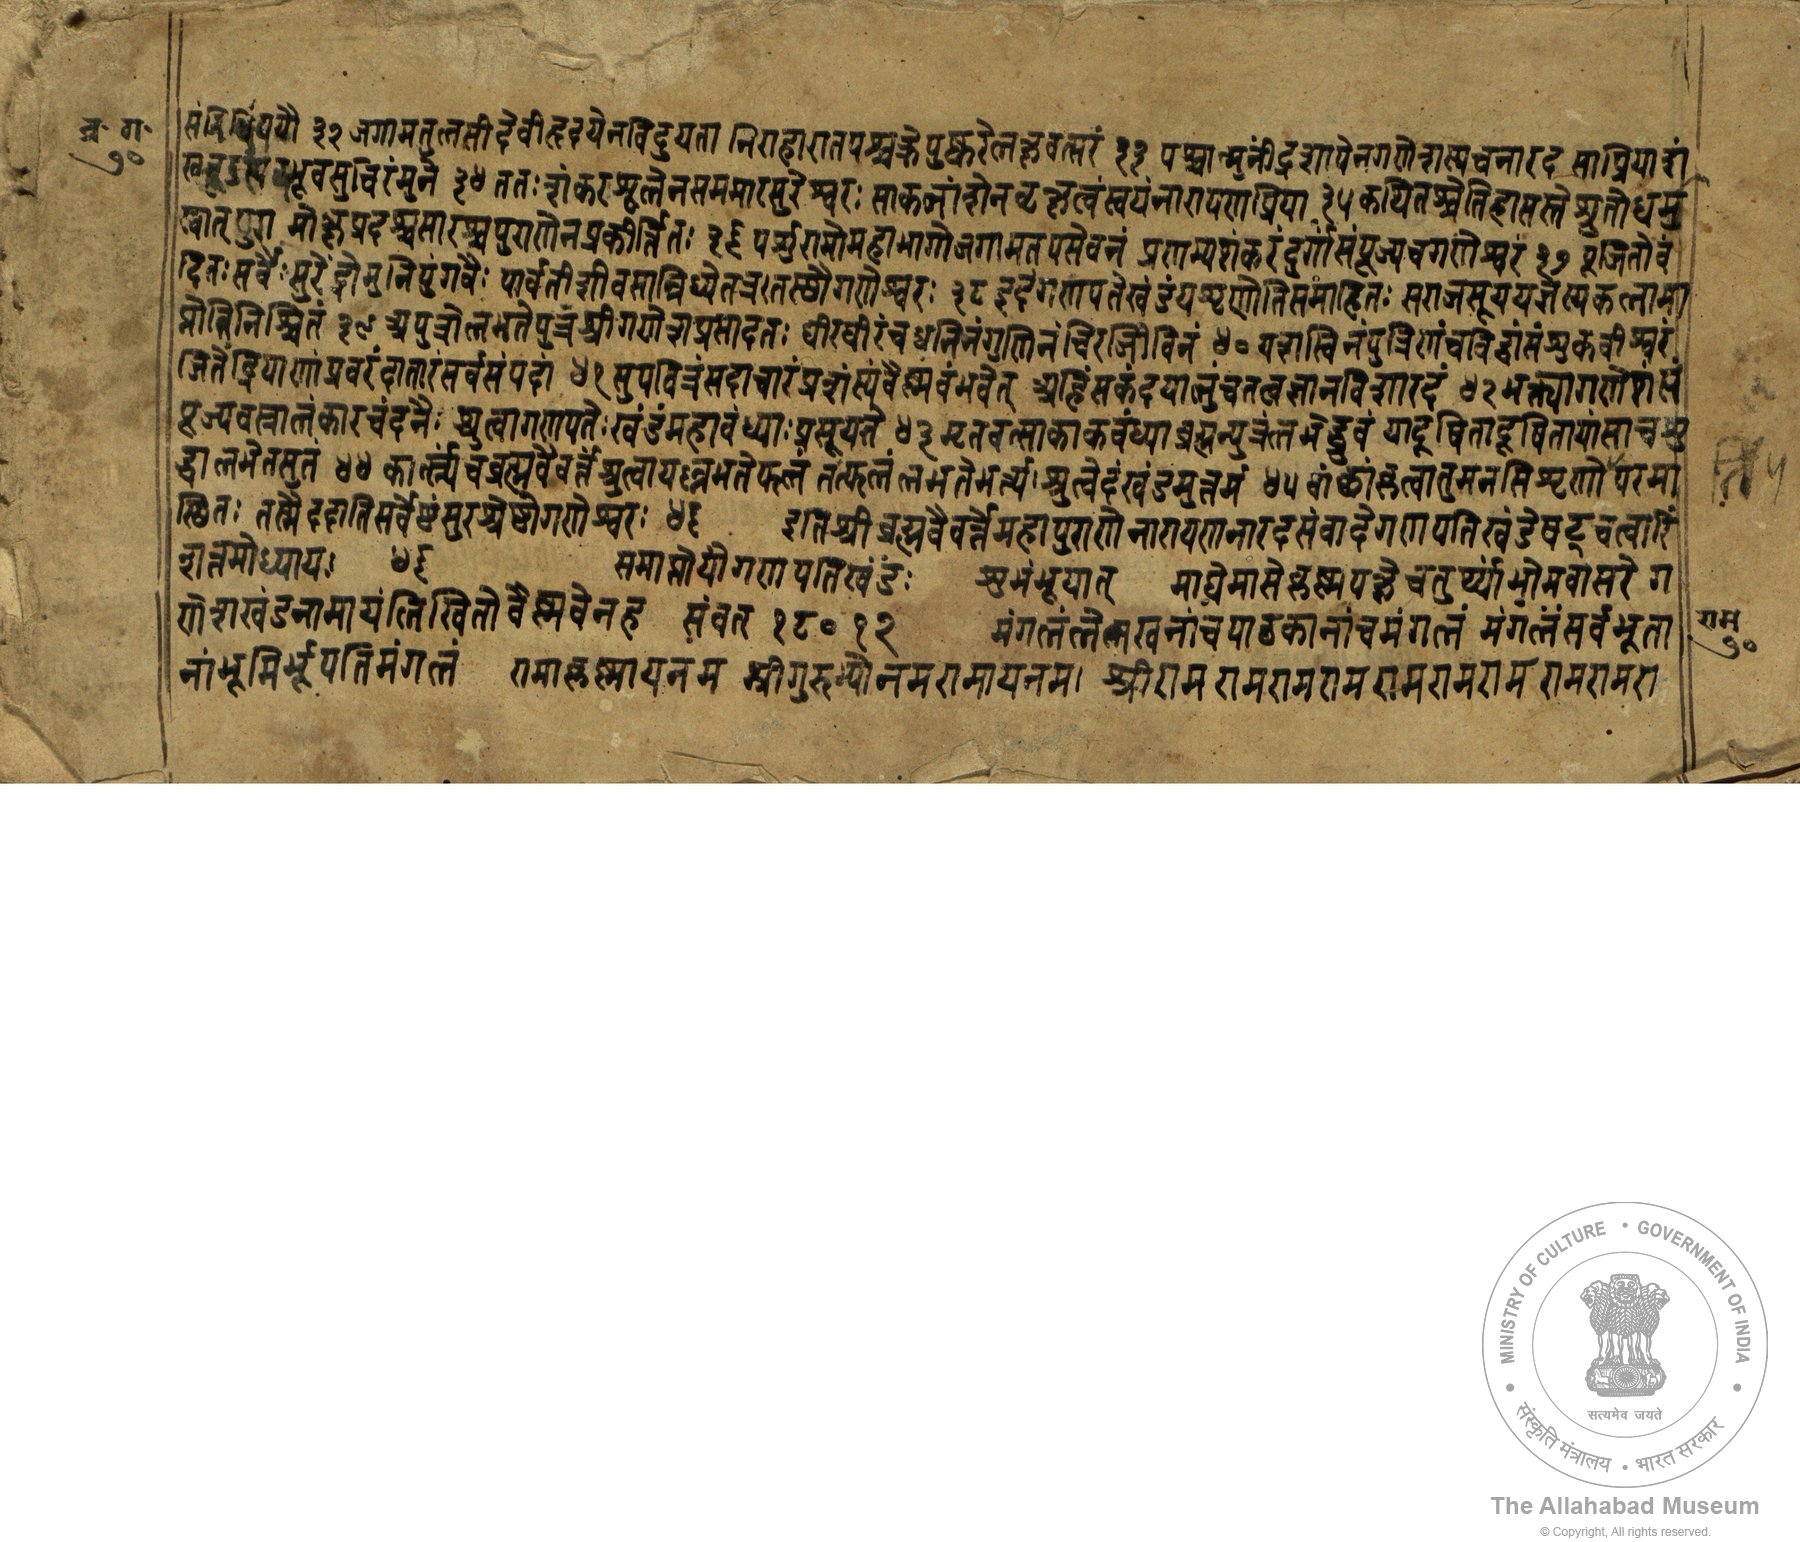 ब्र॰ ग॰
७०
संनिधिंययौ ३२ जगामतुलसी देवीहृदयेनविदुयता निराहारातपश्चक्रेपुष्करेलक्षवत्सरं ३३ पश्चान्मुनींद्रशापेनगणेशस्यचनारद साप्रियाशं
खचूडस्यबभूवसुचिरंमुने ३४ ततःशंकरशूलेनसममारसुरेश्वरः साकलांशेनवृक्षत्वंस्वयंनारायणप्रिया ३५ कथितश्चेतिहासस्ते श्रुतोधर्ममु
खात्पुरा मोक्षप्रदश्चसारश्चपुराणेनप्रकीर्त्तितः ३६ पर्शुरामोमहाभागोजगामतपसेवनं प्रणम्यशंकरंदुर्गांसंपूज्यचगणेश्वरं ३७ पूजितोवं
दितःसर्वैःसुरेंद्रोमुनिपुंगवैः पार्वतीशीवसान्निध्येतत्रतस्थौगणेश्वरः ३८ इदंगणपतेखंडंयशृणोतिसमाहितः सराजसूययज्ञस्यफलमा
प्नोतिनिश्चितं ३९ अपुत्रोलभतेपुत्रंश्रीगणेशप्रसादतः धीरवीरंचधनिनंगुणिनंचिरजीविनं ४० यशस्विनंपुत्रिणंचविद्वांसंसुकवीश्वरं
जितेंद्रियाणांप्रवरंदातारंसर्वसंपदां ४१ सुपवित्रंसदाचारंप्रशंस्यंवैष्णवंभवेत् अहिंसकंदयालुंचतत्वज्ञानविशारदं ४२ भक्त्यागणेशंसं
पूज्यवस्त्रालंकारचंदनैः श्रुत्वागणपतेःखंडंमहावंध्याःप्रसूयते ४३ मृतवत्साकाकवंध्याब्रह्मन्पुत्रंलभेद्ध्रुवं यादूषितादूषितायासाचशु
द्धालभेतसुतं ४४ कार्त्स्न्यंचब्रह्मवैवर्त्तेश्रुत्वायल्लभतेफलं तत्फलंलभतेमर्त्यःश्रुत्वेदंखंडमुत्तमं ४५ वांछांकृत्वातुमनसिशृणोपरमा
स्थितः तस्मैददातिसर्वेष्टंसुरश्रेष्ठोगणेश्वरः ४६ इतिश्रीब्रह्मवैवर्त्तेमहापुराणेनारायणनारदसंवादेगणपतिखंडेषट्चत्वारिं
शत्तमोध्यायः ४६ समाप्तोयोगणपतिखंडः शुभंभूयात् माघेमासेकृष्णपक्षेचतुर्थ्यांभोमवासरे ग
णेशखंडनामायंलिखितोवैष्णवेनह संवत् १८०१२ मंगलंलेखखनांचपाठकानांचमंगलं मंगलंसर्वभूता
नांभूमिर्भूपतिमंगलं रामाकृष्णायनम श्रीगुरुभ्योनमरामायनमः श्रीराम रामरामराम रामरामराम रामरामरा
राम
७०
MINISTRY OF CULTURE • GOVERNMENT OF INDIA
सत्यमेव जयते
संस्कृति मंत्रालय • भारत सरकार
The Allahabad Museum
© Copyright, All rights reserved.